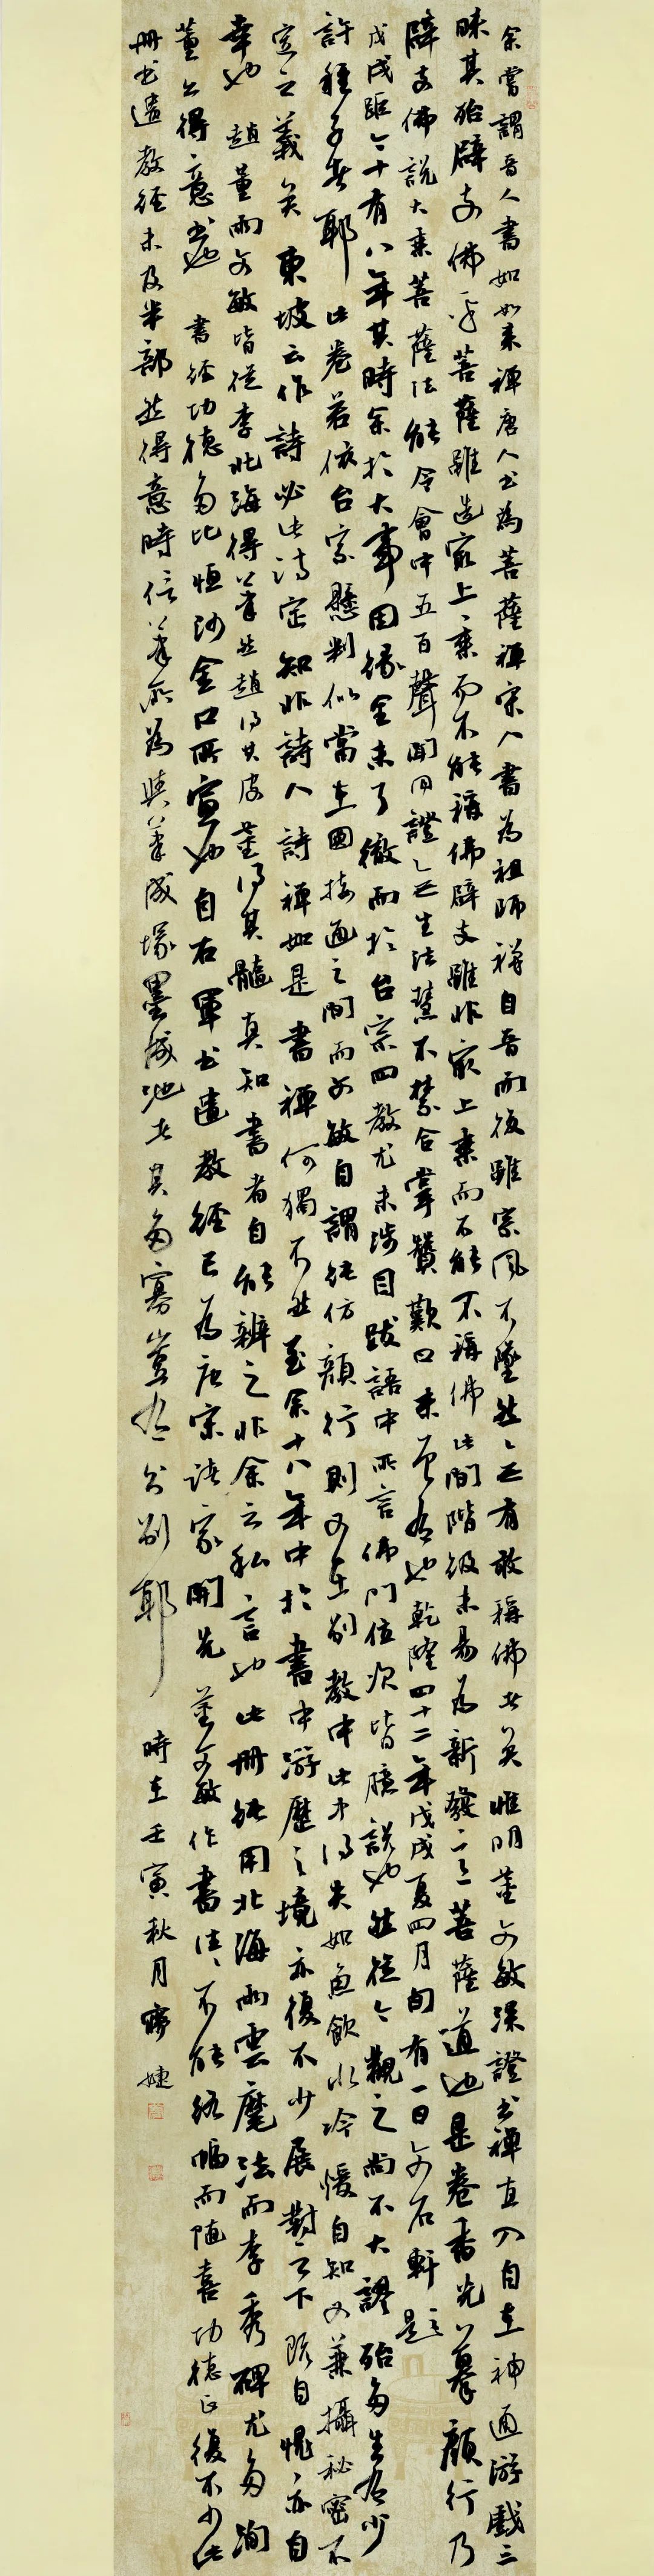 余嘗謂晉人書如如來禪唐人書為菩薩禪宋人書為祖師禪自晉而後雖宗風不墜然〻無有敢稱佛者矣惟明董文敏深證書禪直入自在神通游戲三
昧其殆辟支佛乎菩薩雖造最上乘而不能稱佛辟支雖非最上乘而不能不稱佛此間階級未易為新發意菩薩道也是卷香光以摹顏行乃
辟支佛說大乘菩薩法能令會中五百聲聞同證無生法慧不禁合掌贊歎曰未曾有也乾隆四十二年戊戌夏四月旬有一日文石軒題
戊戌距今十有八年其時余於大事因緣全未了徹而於台宗四教尤未涉目跋語中所言佛門位次皆臆說也然從今觀之尚不大謬殆多生有少
許種子者耶此卷若依台宗懸判似當在圓接通之間而文敏自謂純仿顏行則又在別教中此中得失如魚飲水冷煖自知又兼攝秘密不
定之義矣東坡云作詩必此詩定知非詩人詩禪如是書禪何獨不然至余十八年中於書中游歷之境亦復不少展對之下既自愧亦自
幸也趙董兩文敏皆從李北海得筆然趙得其皮董得其髓真知書者自能辨之非余之私言也此冊純用北海兩雲麾法而李秀碑尤多洵
董公得意書也書經功德多比恒沙金口所宣也自右軍書遺教經已為唐宋諸家開先董文敏作書往〻不能終幅而隨喜功德正復不少此
冊書遺教經未及半部然得意時信筆所為與筆成塚墨成池者其多寡豈有分別耶時在壬寅秋月